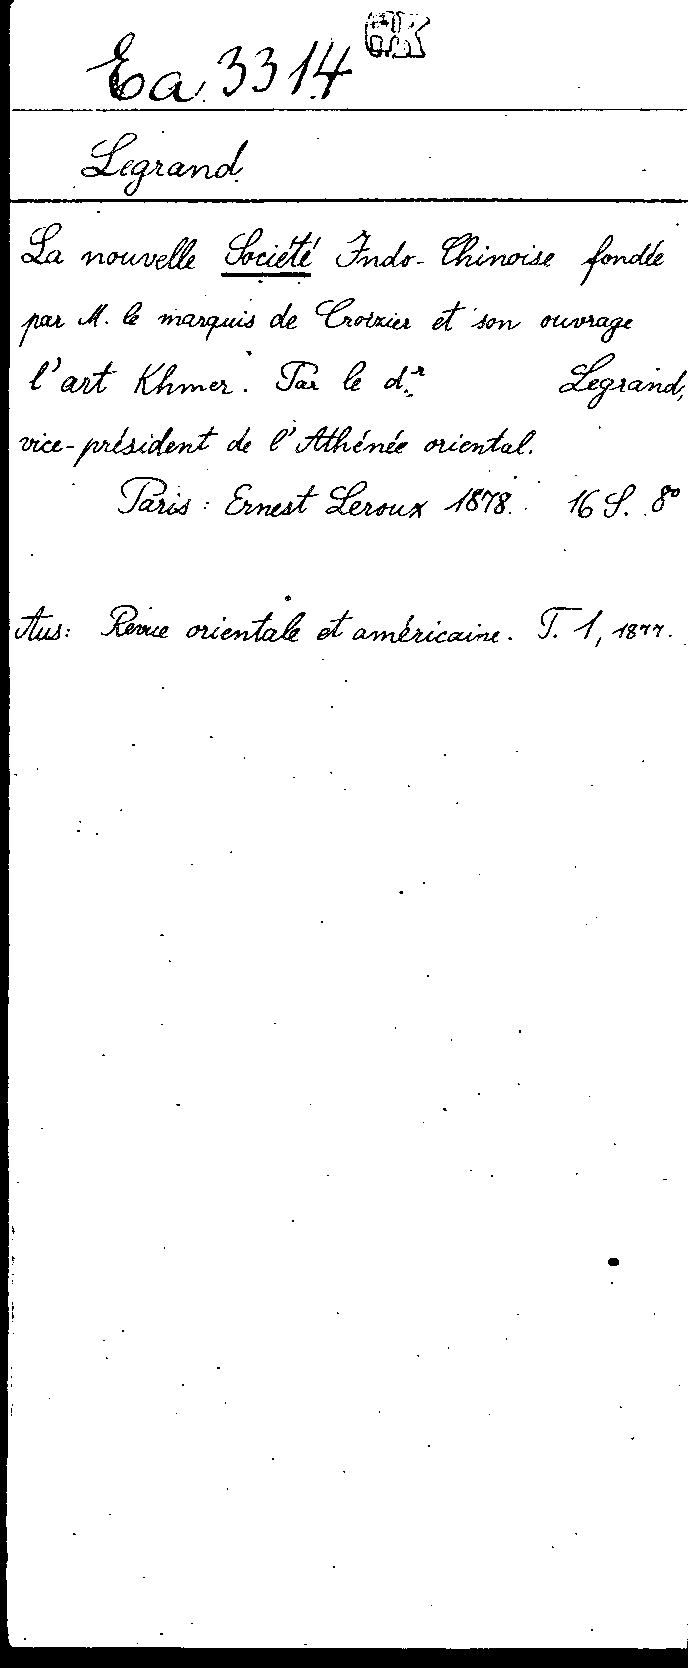 Ea 3314 GK
Legrand
La nouvelle Société Indo-Chinoise fondée
par M. le marquis de Croizier et son ouvrage
l'art Khmer. Par le d.r Legrand,
vice-président de l'Athénée oriental.
Paris: Ernest Leroux 1878. 16 S. 8°
Aus: Revue orientale et américaine. T. 1, 1877.